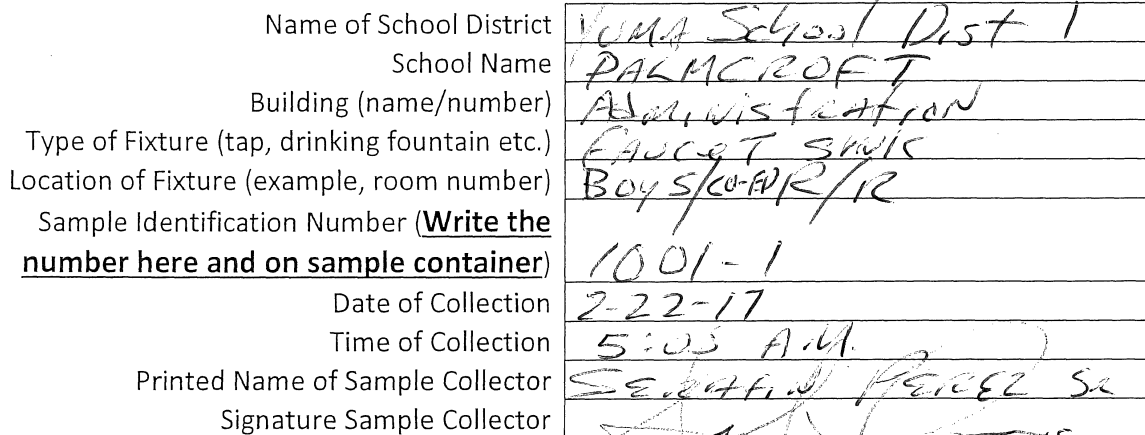 Name of School District YUMA School Dist 1
School Name PALMCROFT
Building (name/number) Administration
Type of Fixture (tap, drinking fountain etc.) FAUCET SINK
Location of Fixture (example, room number) Boys/CO-ED R/R
Sample Identification Number (Write the
number here and on sample container) 1001-1
Date of Collection 2-22-17
Time of Collection A.M.
Printed Name of Sample Collector SERAFIN PEREZ SR
Signature Sample Collector